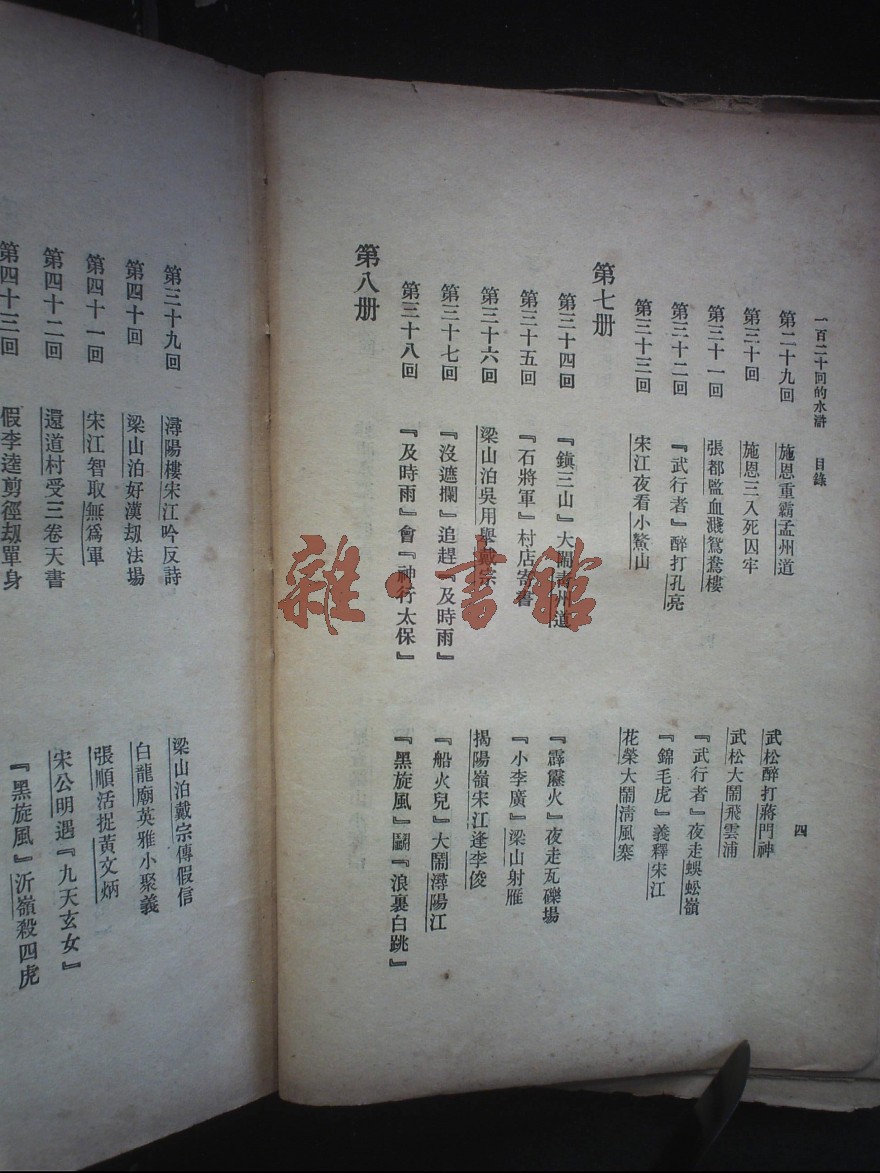 一百二十回的水滸　目錄　四
第二十九回　施恩重霸孟州道　武松醉打蔣門神
第三十回　施恩三入死囚牢　武松大鬧飛雲浦
第三十一回　張都監血濺鴛鴦樓　『武行者』夜走蜈蚣嶺
第三十二回　『武行者』醉打孔亮　『錦毛虎』義釋宋江
第三十三回　宋江夜看小鰲山　花榮大鬧淸風寨
第七册
第三十四回　『鎭三山』大鬧靑州道　『霹靂火』夜走瓦礫場
第三十五回　『石將軍』村店寄書　『小李廣』梁山射雁
第三十六回　梁山泊吳用舉戴宗　揭陽嶺宋江逢李俊
第三十七回　『沒遮攔』追趕『及時雨』　『船火兒』大鬧潯陽江
第三十八回　『及時雨』會『神行太保』　『黑旋風』鬭『浪裏白跳』
第八册
第三十九回　潯陽樓宋江吟反詩　梁山泊戴宗傳假信
第四十回　梁山泊好漢刼法場　白龍廟英雅小聚義
第四十一回　宋江智取無爲軍　張順活捉黃文炳
第四十二回　還道村受三卷天書　宋公明遇『九天玄女』
第四十三回　假李逵剪徑刼單身　『黑旋風』沂嶺殺四虎
雜·書館